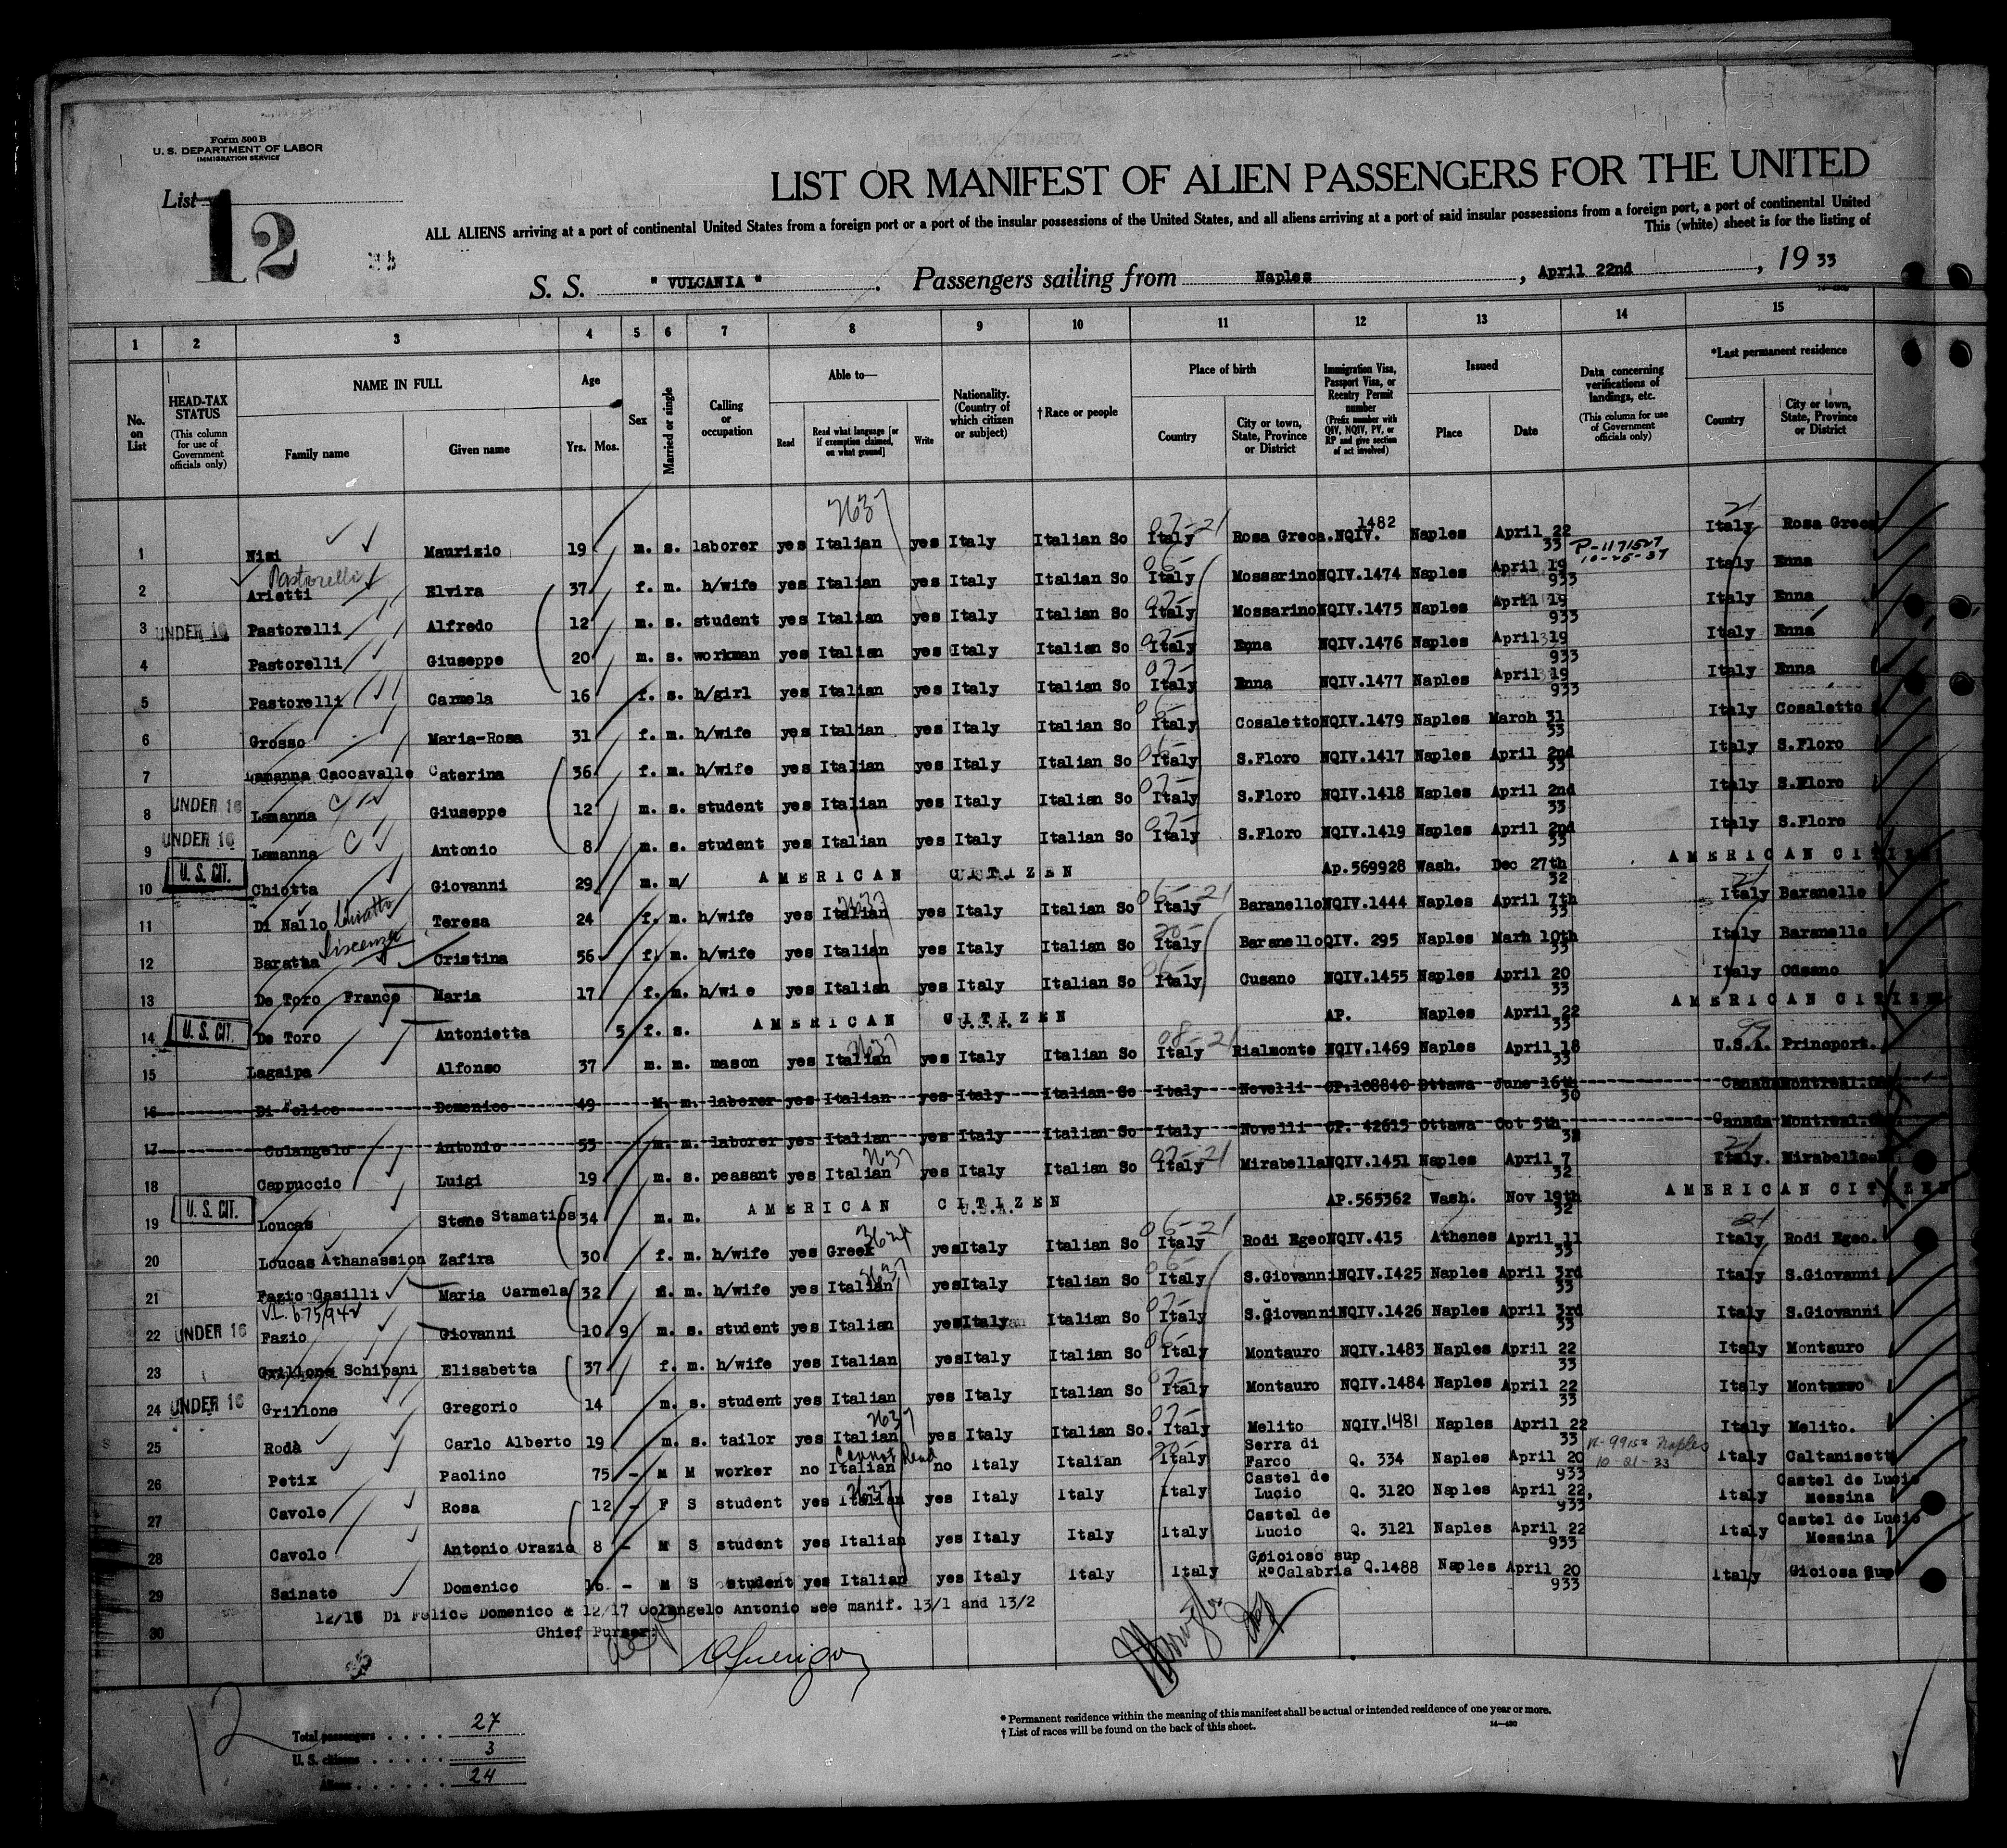 Form 500 B
U. S. DEPARTMENT OF LABOR
IMMIGRATION SERVICE
List 12
LIST OR MANIFEST OF ALIEN PASSENGERS FOR THE UNITED
ALL ALIENS arriving at a port of continental United States from a foreign port or a port of the insular possessions of the United States, and all aliens arriving at a port of said insular possessions from a foreign port, a port of continental United
This (white) sheet is for the listing of
S. S. "VULCANIA". Passengers sailing from Naples, April 22nd, 1933
1 2 3 4 5 6 7 8 9 10 11 12 13 14 15
No. on List
HEAD-TAX STATUS (This column for use of Government officials only)
NAME IN FULL Family name Given name
Age Yrs. Mos.
Sex
Married or single
Calling or occupation
Able to— Read Read what language [or if exemption claimed, on what ground] Write
Nationality. (Country of which citizen or subject)
† Race or people
Place of birth Country City or town, State, Province or District
Immigration Visa, Passport Visa, or Reentry Permit number (Prefix number with QIV, NQIV, PV, or RP and give section of act involved)
Issued Place Date
Data concerning verifications of landings, etc. (This column for use of Government officials only)
*Last permanent residence Country City or town, State, Province or District
1 Nisi Maurizio 19 m. s. laborer yes Italian yes Italy Italian So Italy Rosa Greca. NQIV. 1482 Naples April 22 33 Italy Rosa Greca
2 Arietti Pastorelli Elvira 37 f. m. h/wife yes Italian yes Italy Italian So Italy Mossarino NQIV.1474 Naples April 19 933 P-1171527 10-25-37 Italy Enna
3 UNDER 16 Pastorelli Alfredo 12 m. s. student yes Italian yes Italy Italian So Italy Mossarino NQIV.1475 Naples April 19 933 Italy Enna
4 Pastorelli Giuseppe 20 m. s. workman yes Italian yes Italy Italian So Italy Enna NQIV.1476 Naples April 19 933 Italy Enna
5 Pastorelli Carmela 16 f. s. h/girl yes Italian yes Italy Italian So Italy Enna NQIV.1477 Naples April 19 933 Italy Enna
6 Grosso Maria-Rosa 31 f. m. h/wife yes Italian yes Italy Italian So Italy Cosaletto NQIV.1479 Naples March 31 33 Italy Cosaletto
7 Lamanna Caccavalle Caterina 36 f. m. h/wife yes Italian yes Italy Italian So Italy S.Floro NQIV.1417 Naples April 2nd 33 Italy S.Floro
8 UNDER 16 Lamanna Giuseppe 12 m. s. student yes Italian yes Italy Italian So Italy S.Floro NQIV.1418 Naples April 2nd 33 Italy S.Floro
9 UNDER 16 Lamanna Antonio 8 m. s. student yes Italian yes Italy Italian So Italy S.Floro NQIV.1419 Naples April 2nd 33 Italy S.Floro
10 U. S. CIT. Chiotta Giovanni 29 m. m. AMERICAN CITIZEN Ap.569928 Wash. Dec 27th 32 AMERICAN CITIZEN
11 Di Nallo Teresa 24 f. m. h/wife yes Italian yes Italy Italian So Italy Baranello NQIV.1444 Naples April 7th 33 Italy Baranello
12 Baratta Cristina 56 f. m. h/wife yes Italian yes Italy Italian So Italy Baranello QIV. 295 Naples Marh 10th 33 Italy Baranello
13 De Toro Franco Maria 17 f. m. h/wi e yes Italian yes Italy Italian So Italy Cusano NQIV.1455 Naples April 20 33 Italy Cusano
14 U. S. CIT. De Toro Antonietta 5 f. s. AMERICAN CITIZEN AP. Naples April 22 33 AMERICAN CITIZEN
15 Lagaipa Alfonso 37 m. m. mason yes Italian yes Italy Italian So Italy Rialmonte NQIV.1469 Naples April 18 33 U.S.A. Princport.
16 Di Felice Domenico 49 M. m. laborer yes Italian yes Italy Italian So Italy Novelli CP.108840 Ottawa June 16th 30 Canada Montreal.
17 Colangelo Antonio 55 m. m. laborer yes Italian yes Italy Italian So Italy Novelli CP. 42615 Ottawa Oct 5th Canada Montreal.
18 Cappuccio Luigi 19 m. s. peasant yes Italian yes Italy Italian So Italy Mirabella NQIV.1451 Naples April 7 32 Italy. Mirabella
19 U. S. CIT. Loucas Stene Stamatios 34 m. m. AMERICAN CITIZEN AP.565362 Wash. Nov 19th 32 AMERICAN CITIZEN
20 Loucas Athanassion Zafira 30 f. m. h/wife yes Greek yes Italy Italian So Italy Rodi Egeo NQIV.415 Athenes April 11 33 Italy Rodi Egeo.
21 Fazio Casilli Maria Carmela 32 f. m. h/wife yes Italian yes Italy Italian So Italy S.Giovanni NQIV.I425 Naples April 3rd 33 Italy S.Giovanni
22 UNDER 16 Fazio Giovanni 10 9 m. s. student yes Italian yes Italy Italian So Italy S.Giovanni NQIV.1426 Naples April 3rd 33 Italy S.Giovanni
23 Grillone Schipani Elisabetta 37 f. m. h/wife yes Italian yes Italy Italian So Italy Montauro NQIV.1483 Naples April 22 33 Italy Montauro
24 UNDER 16 Grillone Gregorio 14 m. s. student yes Italian yes Italy Italian So Italy Montauro NQIV.1484 Naples April 22 33 Italy Montauro
25 Rodà Carlo Alberto 19 m. s. tailor yes Italian yes Italy Italian So. Italy Melito NQIV.1481 Naples April 22 33 Italy Melito.
26 Petix Paolino 75 - M M worker no Italian Cannot Read no Italy Italian Italy Serra di Farco Q. 334 Naples April 20 933 Naples 10-21-33 Italy Caltanisett
27 Cavolo Rosa 12 - F S student yes Italian yes Italy Italy Italy Castel de Lucio Q. 3120 Naples April 22, 933 Italy Castel de Lucio Messina
28 Cavolo Antonio Orazio 8 - M S student yes Italian yes Italy Italy Italy Castel de Lucio Q. 3121 Naples April 22 933 Italy Castel de Lucio Messina
29 Sainato Domenico 16 - M S student yes Italian yes Italy Italy Italy Goioioso sup R°Calabria Q.1488 Naples April 20 933 Italy Gioiosa Sup
12/16 Di Felice Domenico & 12/17 Colangelo Antonio see manif. 13/1 and 13/2
30 Chief Purser:
* Permanent residence within the meaning of this manifest shall be actual or intended residence of one year or more.
† List of races will be found on the back of this sheet.
14—430
12
Total passengers . . . . 27
U. S. citizens . . . . . . 3
Aliens . . . . . . 24